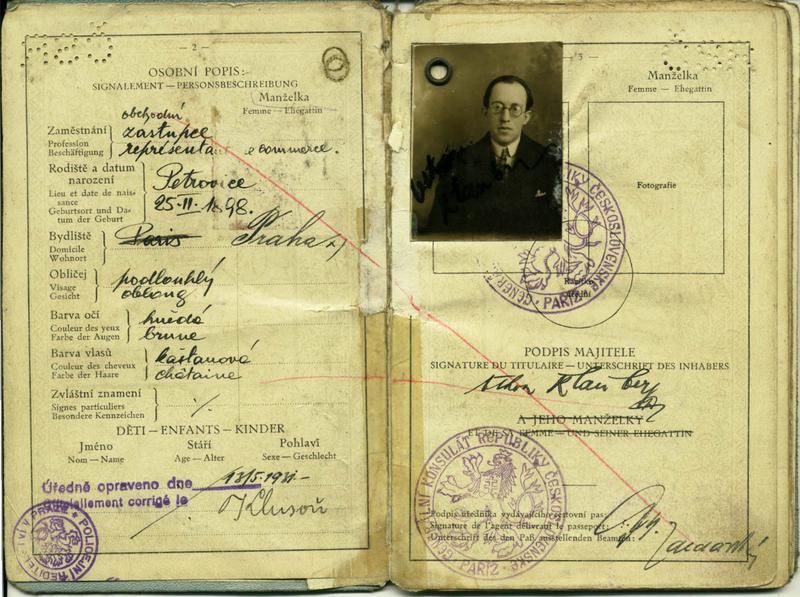 — 2 —
OSOBNÍ POPIS:
SIGNALEMENT — PERSONSBESCHREIBUNG
Manželka
Femme — Ehegattin
obchodní
Zaměstnání
zástupce
Profession
Beschäftigung
représentant e commerce.
Rodiště a datum
narození
Petrovice
Lieu et date de nais-
sance
Geburtsort und Da-
tum der Geburt
25-II-1898.
Bydliště
Paris Praha
Domicile
Wohnort
Obličej
podlouhlý
Visage
Gesicht
oblong
Barva očí
hnědá
Couleur des yeux
Farbe der Augen
brune
Barva vlasů
kaštanová
Couleur des cheveux
Farbe der Haare
châtaine
Zvláštní znamení
Signes particuliers
Besondere Kennzeichen
DĚTI — ENFANTS — KINDER
Jméno Stáří Pohlaví
Nom — Name Age — Alter Sexe — Geschlecht
Úředně opraveno dne 13/5.1931.-
Officiellement corrigé le
POLICEJNÍ ŘEDITELSTVÍ V PRAZE
Manželka
Femme — Ehegattin
Fotografie
GENERÁLNÍ KONSULÁT REPUBLIKY ČESKOSLOVENSKÉ
PAŘÍŽ
PODPIS MAJITELE
SIGNATURE DU TITULAIRE — UNTERSCHRIFT DES INHABERS
Klauber
A JEHO MANŽELKY
ET DE SA FEMME — UND SEINER EHEGATTIN
GENERÁLNÍ KONSULÁT REPUBLIKY ČESKOSLOVENSKÉ
PAŘÍŽ
Podpis úředníka vydávajícího cestovní pas:
Signature de l'agent délivrant le passeport:
Unterschrift des den Paß ausstellenden Beamten: